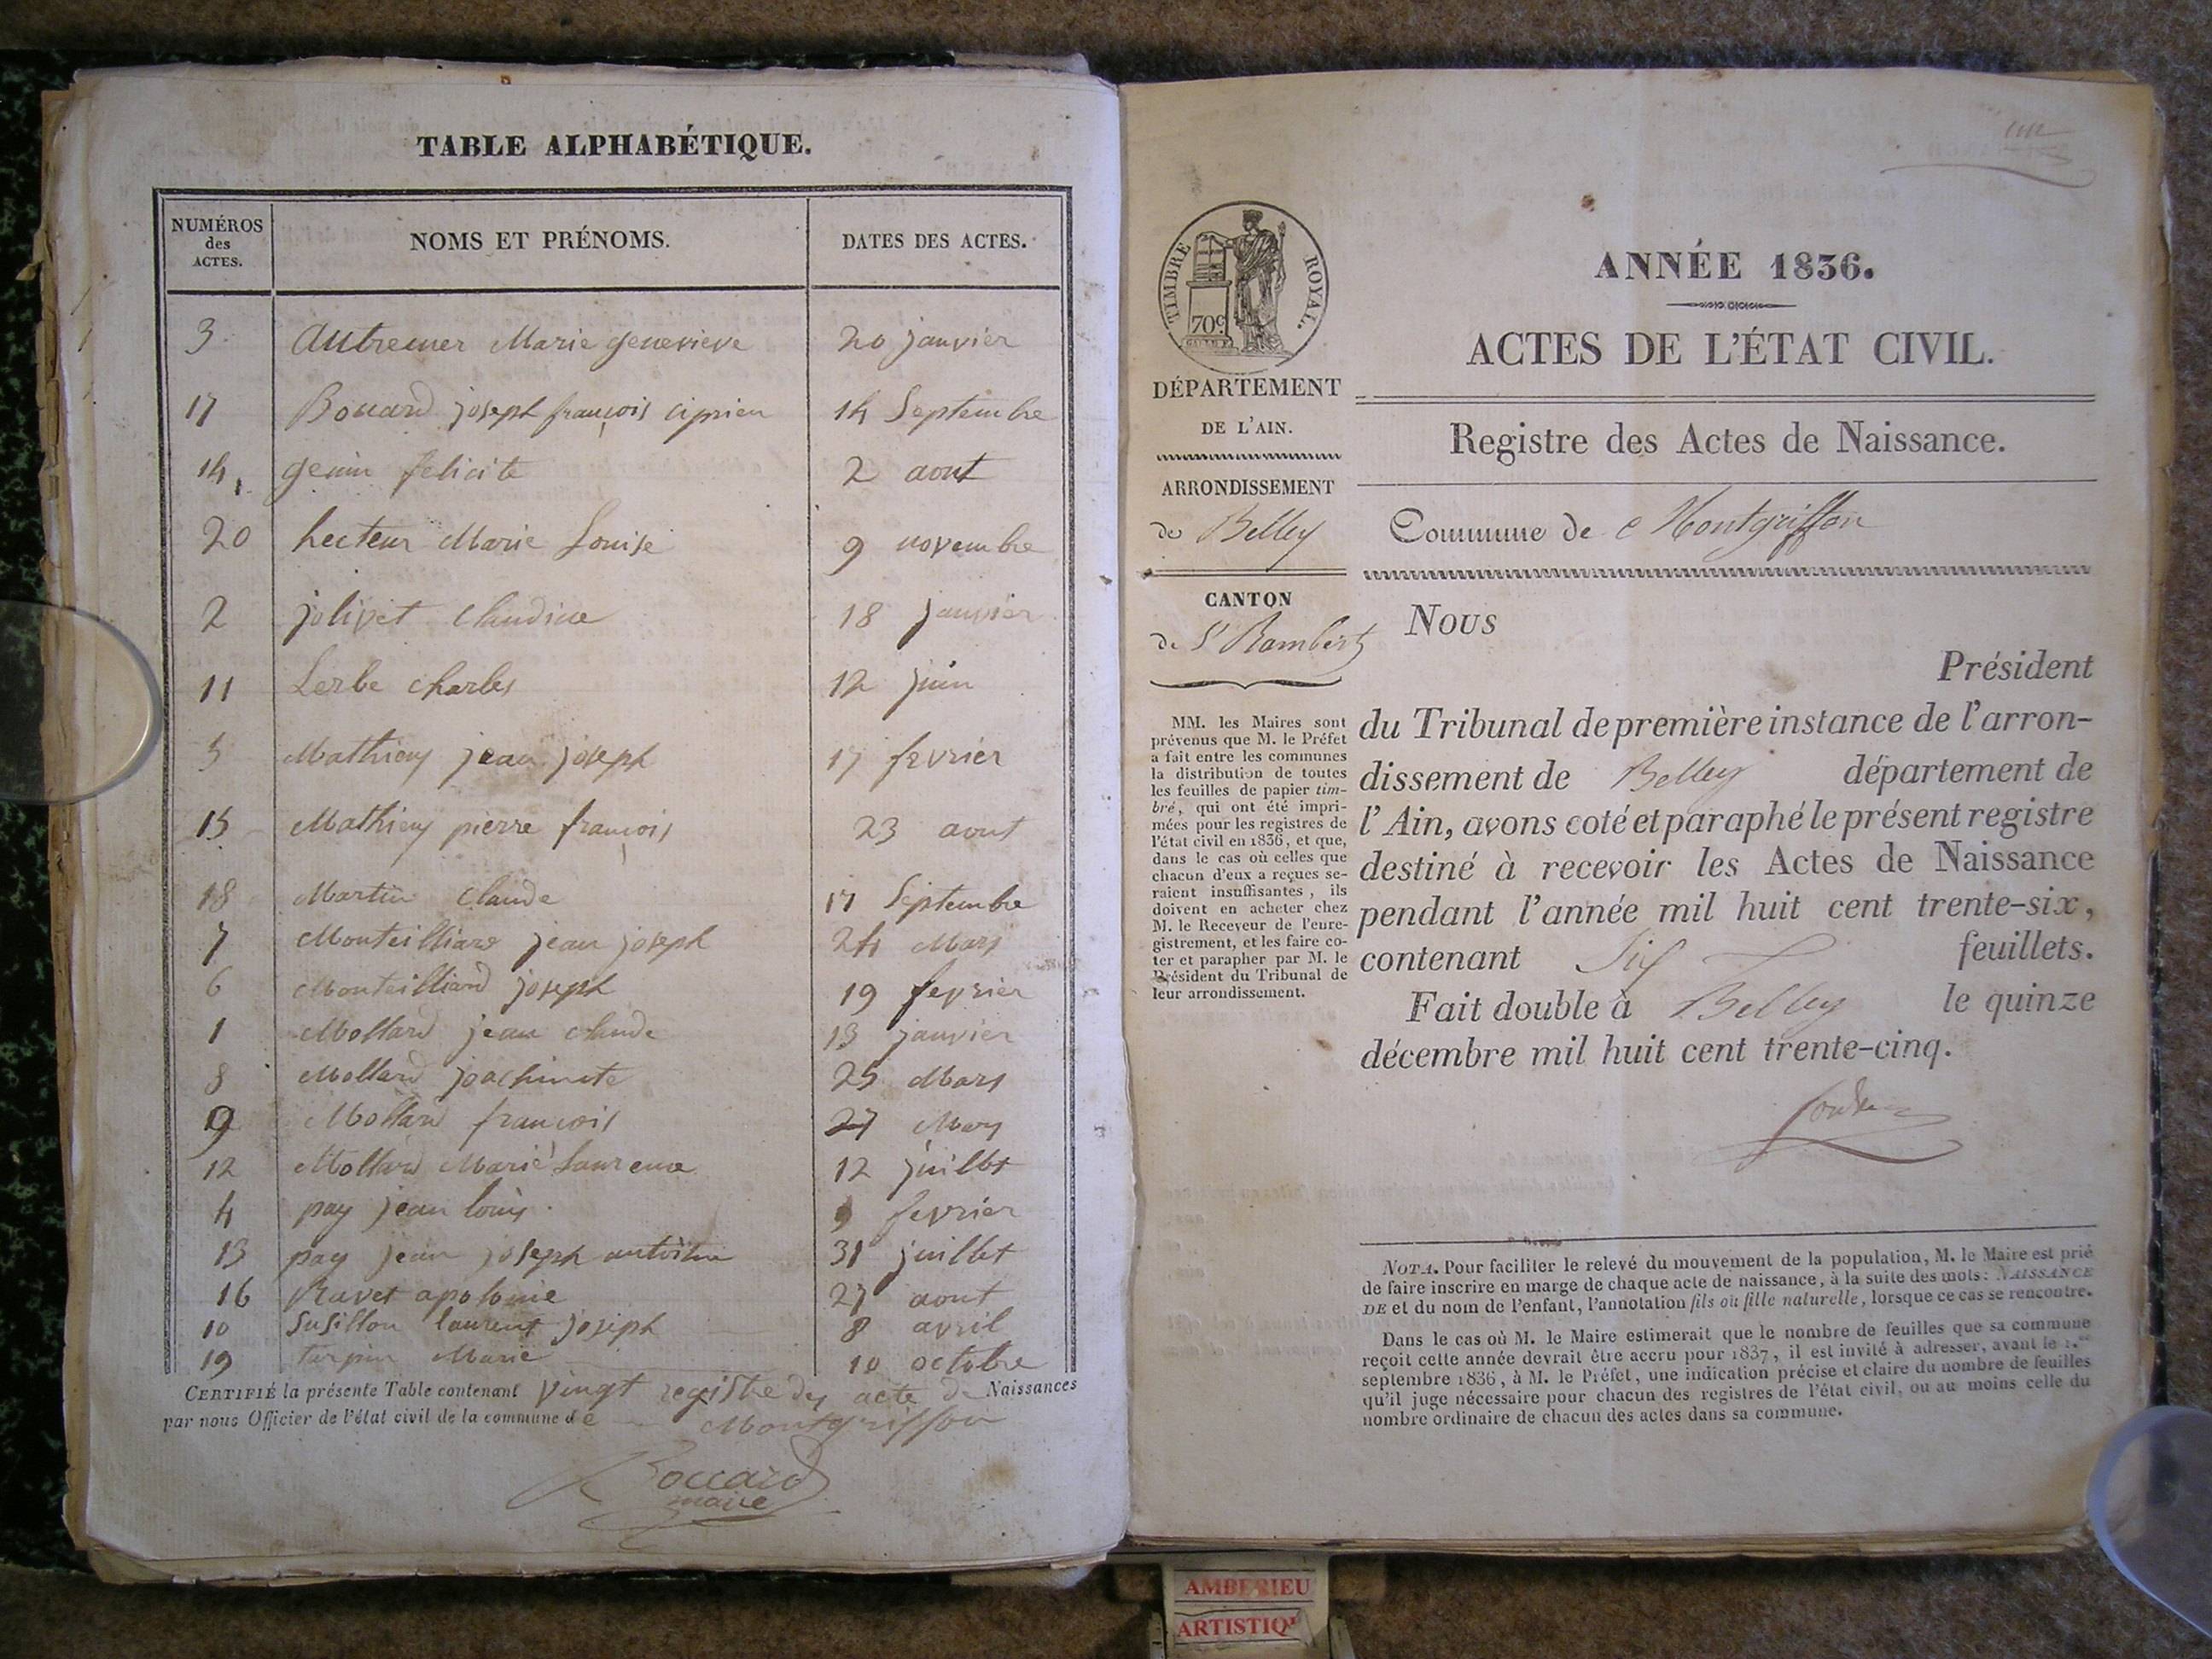 TABLE ALPHABÉTIQUE.
NUMÉROS des ACTES. NOMS ET PRÉNOMS. DATES DES ACTES.
3 Autremer Marie genevieve 20 janvier
17 joseph françois ciprien 14 Septembre
14 genin felicite 2 aout
20 hecteur Marie Louise 9 novembre
2 jolivet Claudine 18 janvier
11 Lerbe charles 12 juin
5 Mathieu jean joseph 17 fevrier
15 Mathieu pierre françois 23 aout
18 Martin Claude 17 Septembre
7 Monteilliard jean joseph 24 Mars
6 Monteilliard joseph 19 fevrier
1 Mollard jean claude 13 janvier
8 Mollard 25 Mars
9 Mollard françois 27 Mars
12 Mollard Marie Laurence 12 juillet
4 pay jean louis 9 fevrier
13 pay jean joseph antoine 31 juillet
16 Ravet apolonie 27 aout
10 Susillon laurent joseph 8 avril
19 turpin Marie 10 octobre
CERTIFIÉ la présente Table contenant vingt registre des acte de Naissances
par nous Officier de l'état civil de la commune de Montgriffon
Boccard
maire
TIMBRE ROYAL.
70c
DÉPARTEMENT
DE L'AIN.
ARRONDISSEMENT
de Belley
CANTON
de St Rambert
MM. les Maires sont
prévenus que M. le Préfet
a fait entre les communes
la distribution de toutes
les feuilles de papier tim-
bré, qui ont été impri-
mées pour les registres de
l'état civil en 1836, et que,
dans le cas où celles que
chacun d'eux a reçues se-
raient insuffisantes, ils
doivent en acheter chez
M. le Receveur de l'enre-
gistrement, et les faire co-
ter et parapher par M. le
Président du Tribunal de
leur arrondissement.
ANNÉE 1836.
ACTES DE L'ÉTAT CIVIL.
Registre des Actes de Naissance.
Commune de Montgriffon
Nous
Président
du Tribunal de première instance de l'arron-
dissement de Belley département de
l'Ain, avons coté et paraphé le présent registre
destiné à recevoir les Actes de Naissance
pendant l'année mil huit cent trente-six,
contenant Six feuillets.
Fait double à Belley le quinze
décembre mil huit cent trente-cinq.
NOTA. Pour faciliter le relevé du mouvement de la population, M. le Maire est prié
de faire inscrire en marge de chaque acte de naissance, à la suite des mots: NAISSANCE
DE et du nom de l'enfant, l'annotation fils ou fille naturelle, lorsque ce cas se rencontre.
Dans le cas où M. le Maire estimerait que le nombre de feuilles que sa commune
reçoit cette année devrait être accru pour 1837, il est invité à adresser, avant le 1.er
septembre 1836, à M. le Préfet, une indication précise et claire du nombre de feuilles
qu'il juge nécessaire pour chacun des registres de l'état civil, ou au moins celle du
nombre ordinaire de chacun des actes dans sa commune.
AMBERIEU
ARTISTIQU